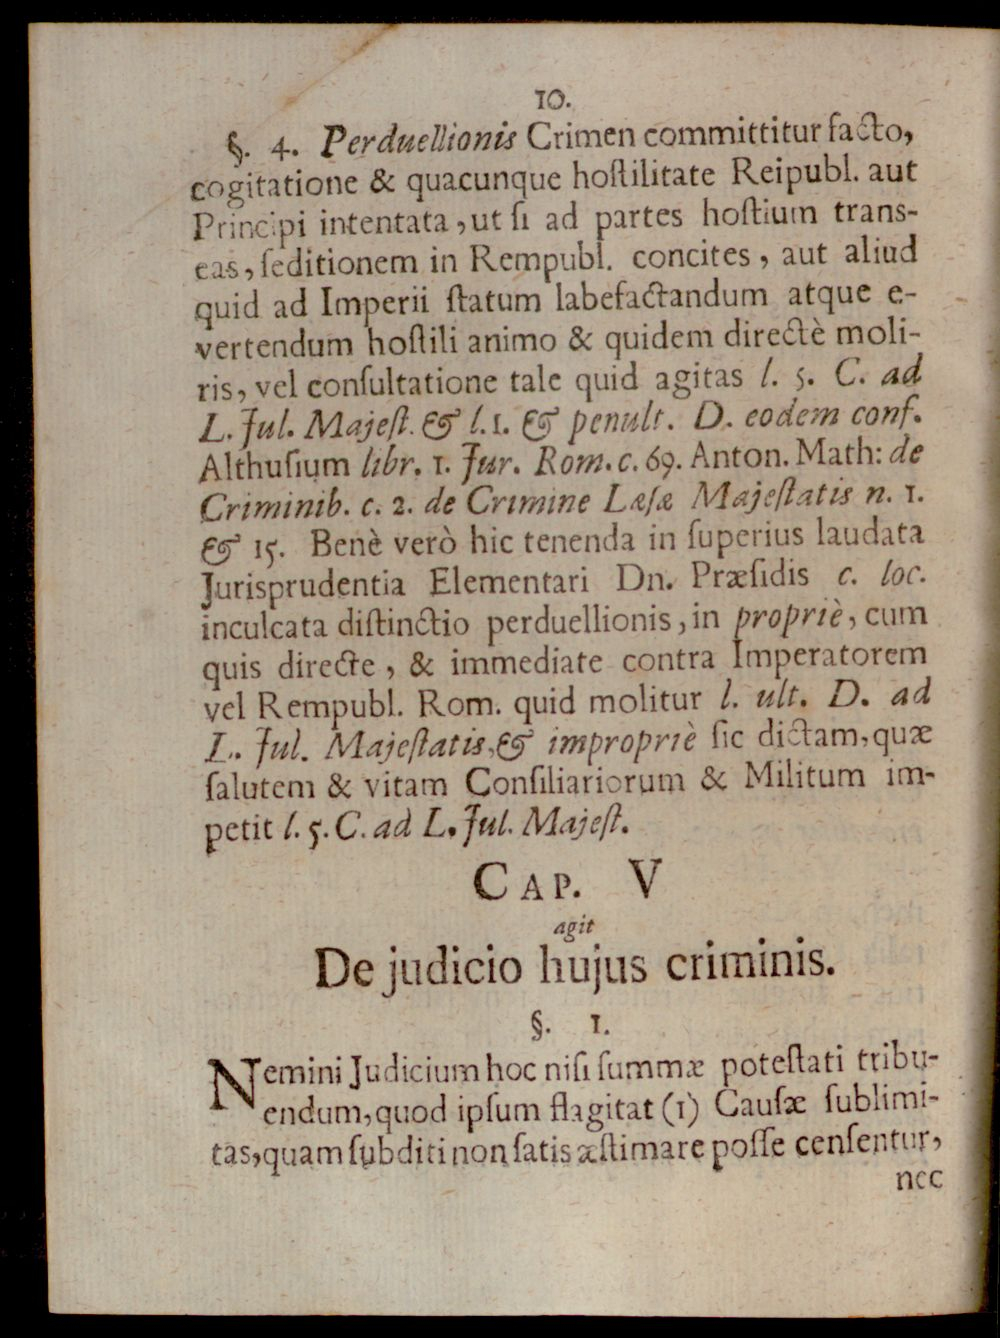 10.
§. 4. Perduellionis Crimen committitur facto,
cogitatione & quacunque hoſtilitate Reipubl. aut
Principi intentata, ut ſi ad partes hoſtium trans-
eas, ſeditionem in Rempubl. concites, aut aliud
quid ad Imperii ſtatum labefactandum atque e-
vertendum hoſtili animo & quidem directè moli-
ris, vel conſultatione tale quid agitas l. 5. C. ad
L. Jul. Majeſt. & l. 1. & penult. D. eodem conf.
Althuſium libr. 1. Jur. Rom. c. 69. Anton. Math: de
Criminib. c. 2. de Crimine Læſæ Majeſtatis n. 1.
& 15. Benè verò hic tenenda in ſuperius laudata
Jurisprudentia Elementari Dn. Præſidis c. loc.
inculcata diſtinctio perduellionis, in propriè, cum
quis directe, & immediate contra Imperatorem
vel Rempubl. Rom. quid molitur l. ult. D. ad
L. Jul. Majeſtatis, & impropriè ſic dictam, quæ
ſalutem & vitam Conſiliariorum & Militum im-
petit l. 5. C. ad L. Jul. Majeſt.
CAP. V
agit
De judicio hujus criminis.
§. 1.
Nemini Judicium hoc niſi ſummæ poteſtati tribu-
endum, quod ipſum flagitat (1) Cauſæ ſublimi-
tas, quam ſubditi non ſatis æſtimare poſſe cenſentur,
nec